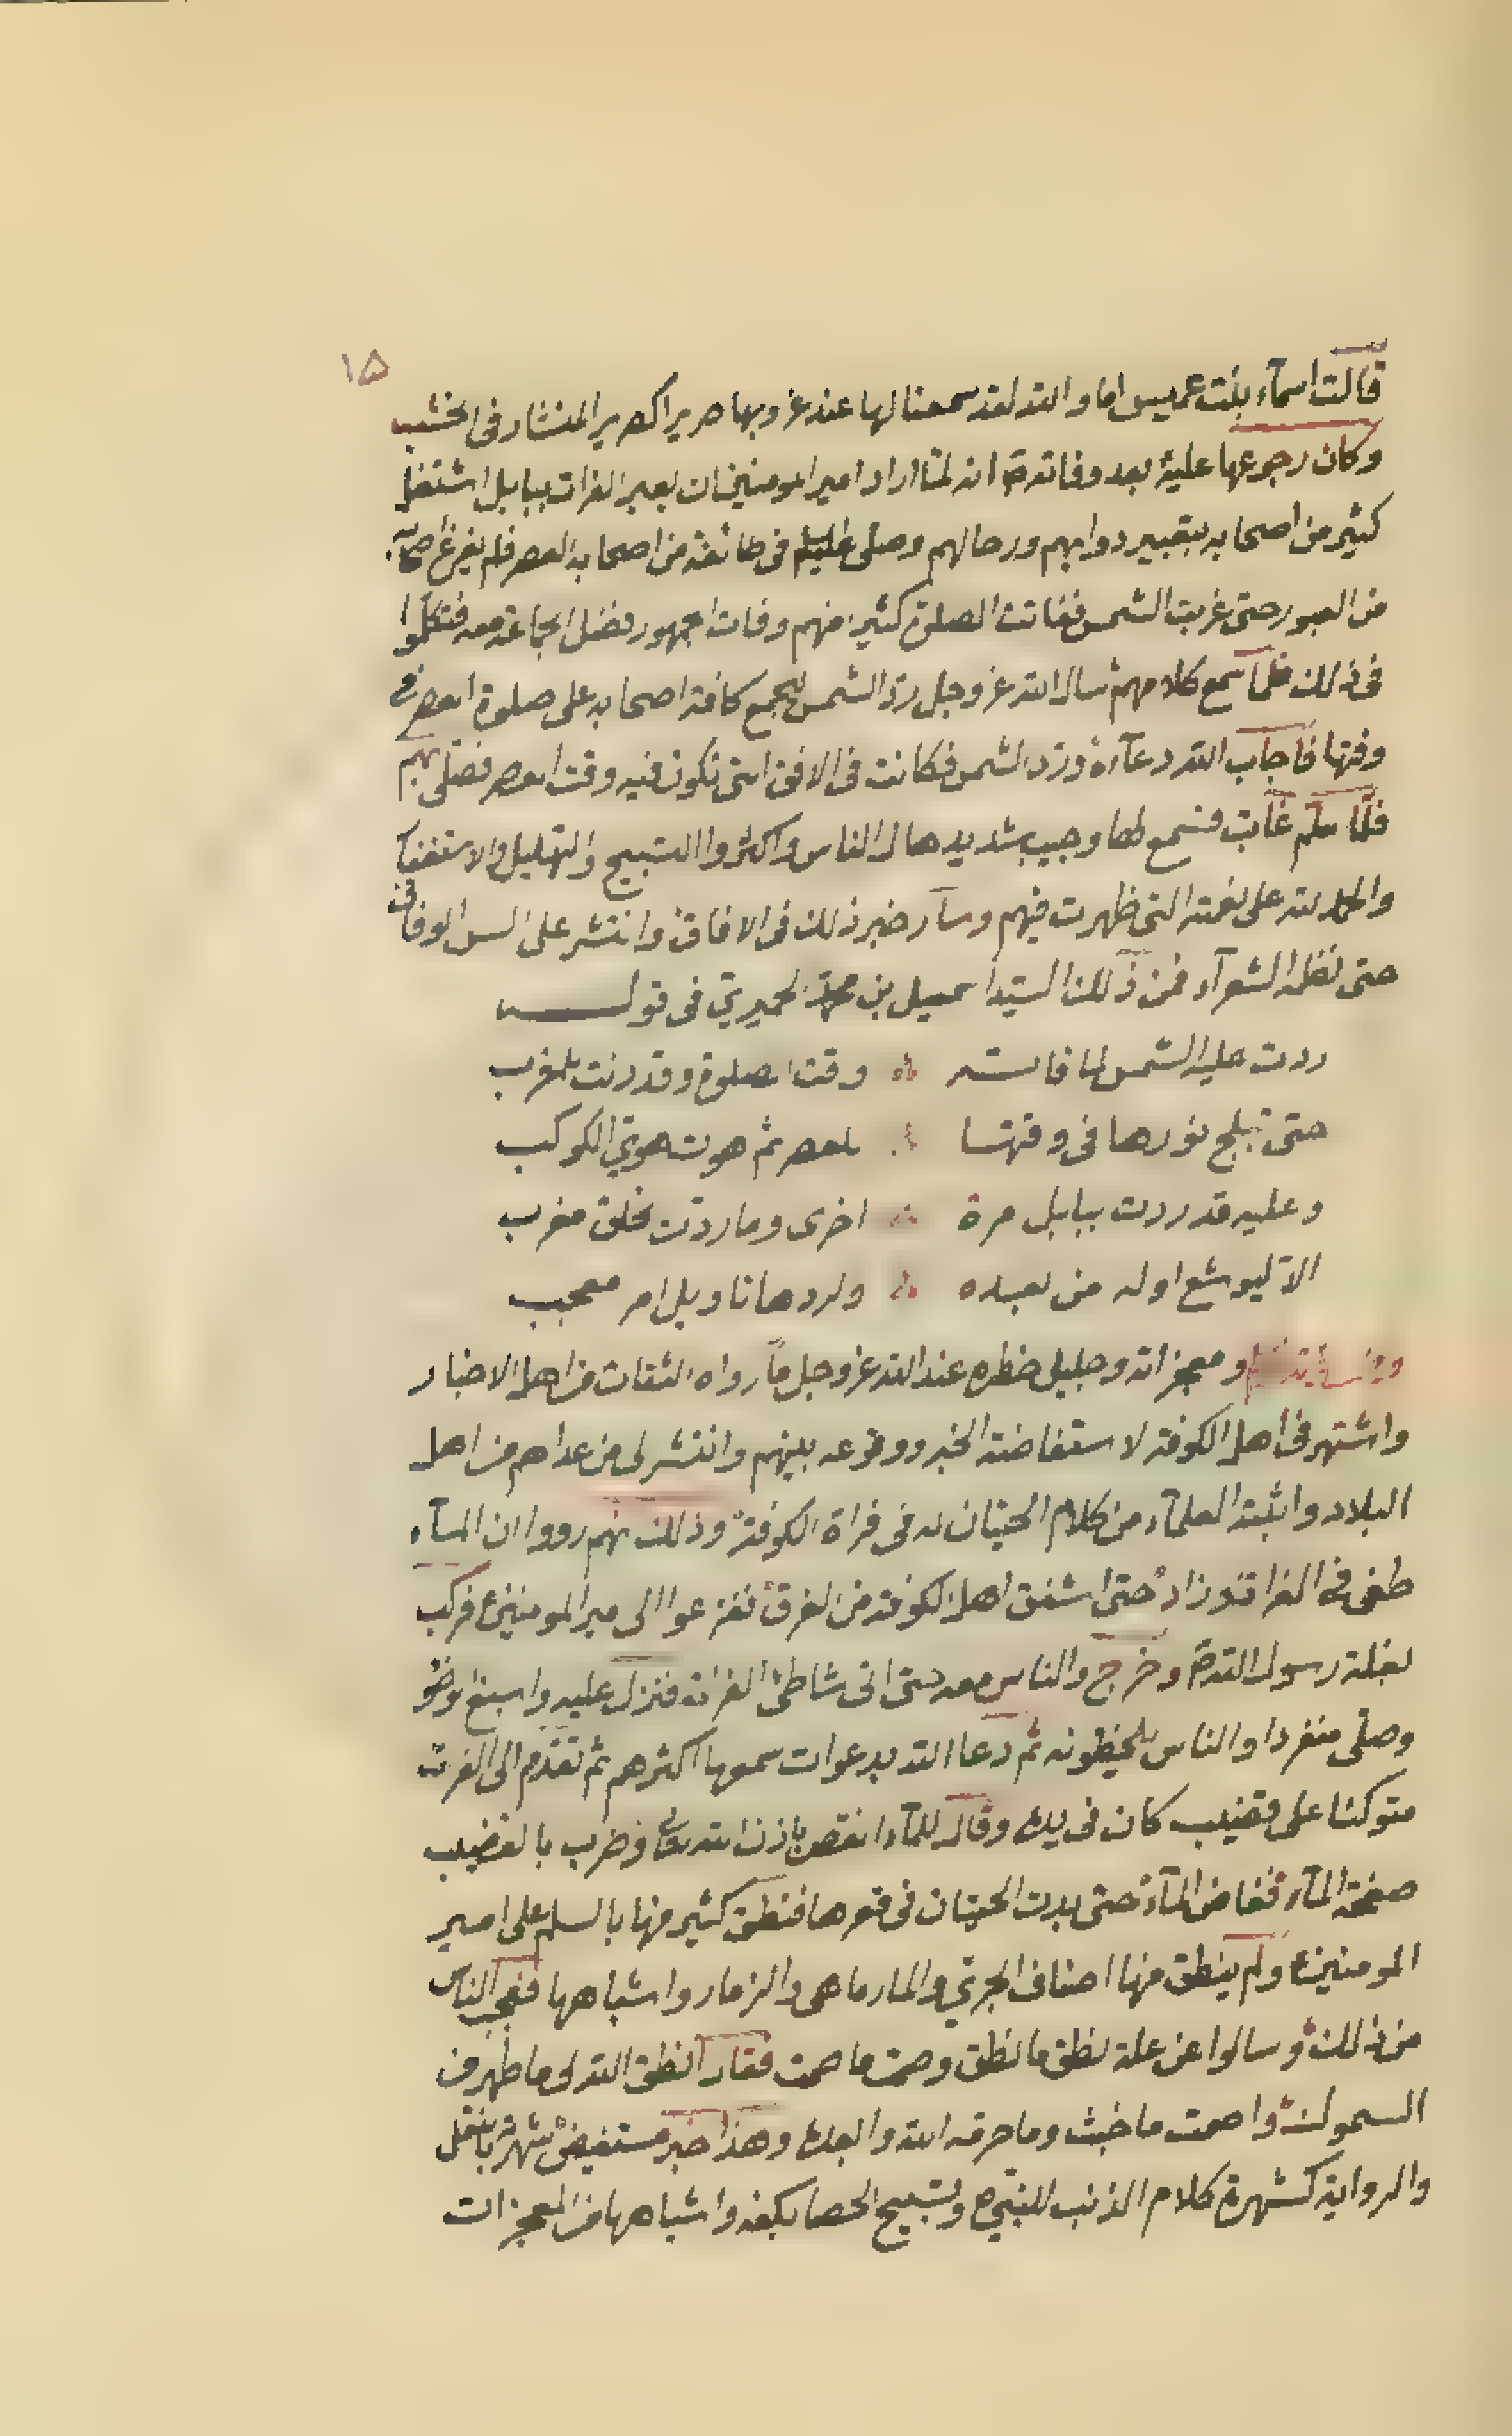 ١٥
قالت اسمآء بنت عميس اما والله لقد سمعنا لها عند غروبها صريرا كصرير المنشار فى الخشب
وكان رجوعها عليه بعد وفاته ص انه لمّا اراد امير المومنين ان يعبر الفرات ببابل اشتغل
كثير من اصحابه بتعبير دوابهم ورحالهم وصلى عليه السلم فى طائفة من اصحابه العصر فلم يفرغ اصحابه
من العبور حتى غربت الشمس ففاتت الصلوة كثيرا منهم وفات الجمهور فضل الجماعة معه فتكلموا
فى ذلك فلمّا سمع كلامهم سال الله عز وجل ردّ الشمس ليجمع كافة اصحابه على صلوة العصر فى
وقتها فاجاب الله دعآءه وردّ الشمس فكانت فى الافق التى تكون فيه وقت العصر فصلى بهم
فلمّا سلم غابت فسمع لها وجيب شديد هال الناس واكثروا التسبيح والتهليل والاستغفار
والحمد لله على نعمته التى ظهرت فيهم وسآر خبر ذلك فى الافاق وانتشر على السن
حتى نظمه الشعرآء فمن ذلك السيّد اسمعيل بن محمد الحميرىّ فى قولـــه
ردت عليه الشمس لما فاته ؞ وقت الصلوة وقد دنت للمغرب
حتى تبلج نورها فى وقتها ؞ للعصر ثم هوت هوىّ الكوكب
وعليه قد ردت ببابل مرة ؞ اخرى وما ردّت لخلق مغرب
الاّ ليوشع اوله من بعده ؞ ولردها تاويل امر معجب
ومعجزاته وجليل خطره عند الله عز وجل مآ رواه الثقات من اهل الاخبار
واشتهر فى اهل الكوفة لاستفاضة الخبر ووقوعه بينهم وانتشر لى من عداهم من اهل
البلاد واثبته العلمآء من كلام الحيتان له فى فراة الكوفة وذلك نهم رووا ان المآء
طغى فى الفرات وزاد حتى اشفق اهل الكوفة من الغرق ففزعوا الى مير المومنين ع فركب
بغلة رسول الله ص وخرج والناس معه حتى اتى شاطئ الفرات فنزل عليه واسبغ الوضو
وصلّى منفردا والناس يلحظونه ثم دعا الله بدعوات سمعها اكثرهم ثم تقدّم الى الفرت
متوكئا على قضيب كان فى يده وقال للمآء انقص باذن الله تعا وضرب بالقضيب
صفحة المآء فغاض المآء حتى بدت الحيتان فى قعرها فنطق كثير منها بالسلم على امير
المومنين ع ولم ينطق منها اصناف الجرىّ والمارماهى والزمار واشباهها فعجب الناس
من ذلك وسالوا عن علة نطق ما نطق وصمت ما صمت فقال انطق الله لى ما طهر من
السموك واصمت ما خبث وما حرمه الله وابعده وهذا خبر مستفيض شهرته بالنقل
والرواية كشهرة كلام الذئب للنبى ص وتسبيح الحصا بكفه واشباهها من المعجزات